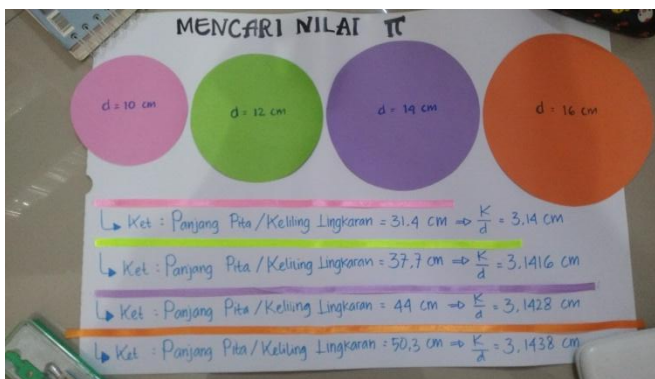 MENCARI NILAI π
d = 10 cm
d = 12 cm
d = 14 cm
d = 16 cm
↳ Ket : Panjang Pita / Keliling Lingkaran = 31.4 cm ⇒ K/d = 3,14 cm
↳ Ket : Panjang Pita / Keliling Lingkaran = 37,7 cm ⇒ K/d = 3,1416 cm
↳ Ket : Panjang Pita / Keliling Lingkaran = 44 cm ⇒ K/d = 3,1428 cm
↳ Ket : Panjang Pita / Keliling Lingkaran = 50,3 cm ⇒ K/d = 3,1438 cm